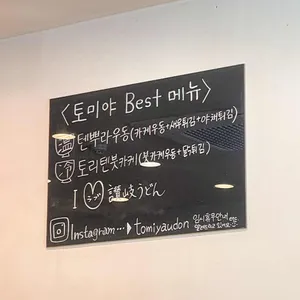 〈토미야 Best 메뉴〉
温 텐뿌라우동(카케우동+새우튀김+야채튀김)
冷 토리텐붓카케(붓카케우동+닭튀김)
I ラブ 讃岐うどん
Instagram...▶ tomiyaudon 임시휴무안내